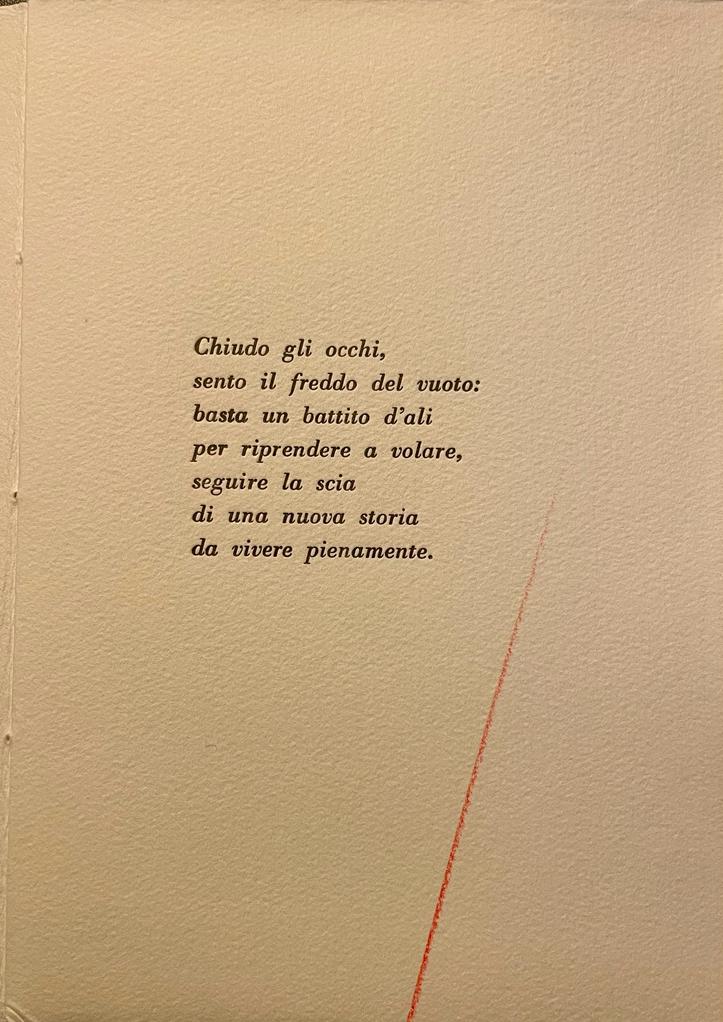 Chiudo gli occhi,
sento il freddo del vuoto:
basta un battito d'ali
per riprendere a volare,
seguire la scia
di una nuova storia
da vivere pienamente.